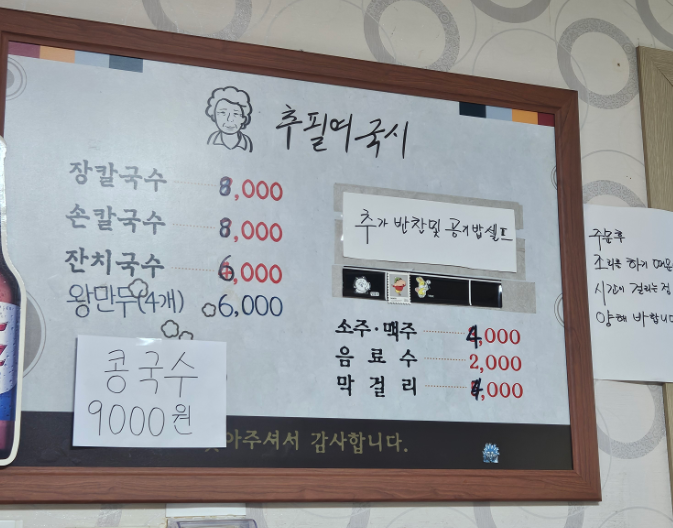 추필여국시
장칼국수 8,000
손칼국수 8,000
잔치국수 6,000
왕만두(4개) 6,000
콩국수
9000원
추가 반찬및 공기밥셀프
소주·맥주 4,000
음료수 2,000
막걸리 4,000
아주셔서 감사합니다.
주문후
조리를 하기 때문
시간이 걸리는점
양해 바랍니다